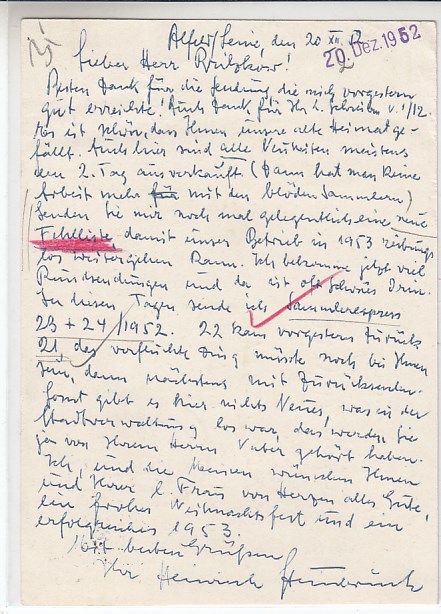 Alfeld/Leine, den 20 XII 52
20. Dez. 1952
Lieber Herr Pritzkow!
Besten Dank für die Sendung die mich vorgestern
gut erreichte! Auch Dank für Ihr l. Schreiben v. 1/12.
Es ist schön, dass Ihnen unsere alte Heimat ge-
fällt. Auch hier sind alle Neuheiten meistens
den 2. Tag ausverkauft (Dann hat man keine
Arbeit mehr für mit den blöden Sammlern)
Senden Sie mir noch mal gelegentlich eine neue
Fehlliste damit unser Betrieb in 1953 reibungs
los weitergehen kann. Ich bekomme jetzt viel
Rundsendungen und da ist oft schönes drin.
In diesen Tagen sende ich Sammlerexpress
23 + 24/1952. 22 kam vorgestern zurück
21 das verfluchte Ding müsste noch bei Ihnen
sein, dann nächstens mit zurücksenden.
Sonst gibt es hier nichts Neues, was in der
Stadtverwaltung los war, das werden Sie
ja von Ihrem Herrn Vater gehört haben.
Ich, und die Meinen wünschen Ihnen
und Ihrer l. Frau von Herzen alles Gute,
ein frohes Weihnachtsfest und ein
erfolgreiches 1953.
Mit besten Grüßen
Ihr Heinrich